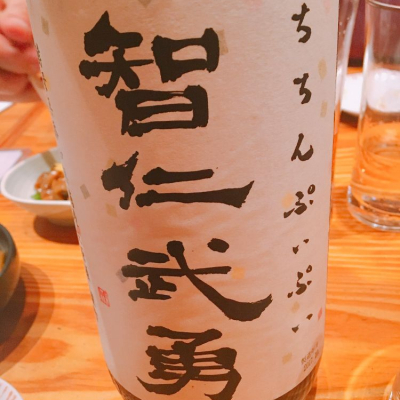 ちちんぷいぷい
智仁武勇